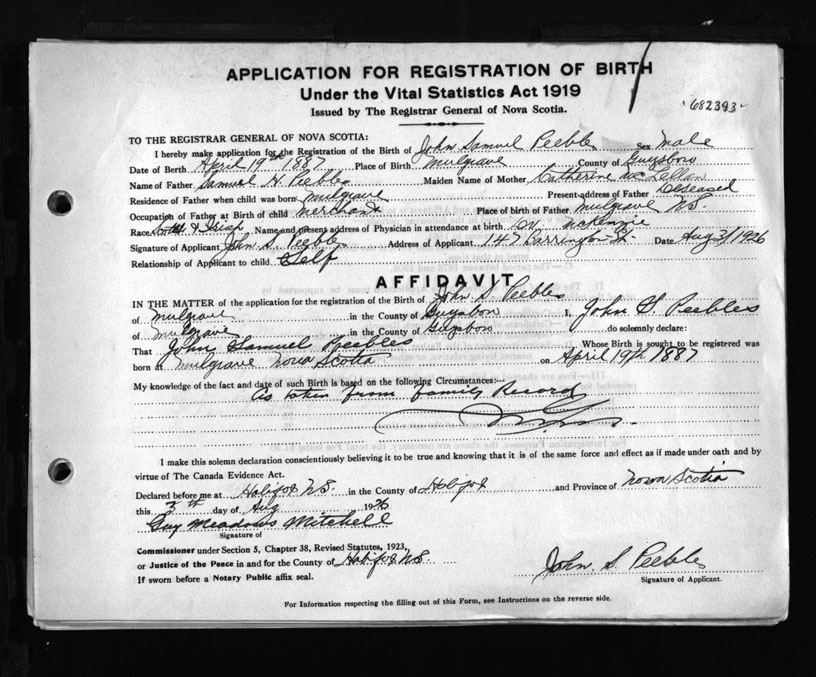 APPLICATION FOR REGISTRATION OF BIRTH
Under the Vital Statistics Act 1919
Issued by The Registrar General of Nova Scotia.
682393
TO THE REGISTRAR GENERAL OF NOVA SCOTIA:
I hereby make application for the Registration of the Birth of John Samuel Peebles Sex Male
Date of Birth April 19th 1887 Place of Birth Mulgrave County of Guysboro
Name of Father Samuel H Peebles Maiden Name of Mother Catherine McLellan
Residence of Father when child was born Mulgrave Present address of Father Deseased
Occupation of Father at Birth of child Merchant Place of birth of Father Mulgrave NS.
Race & Irish Name and present address of Physician in attendance at birth Dr McKenzie
Signature of Applicant John S. Peebles Address of Applicant 147 Barrington St. Date Aug 3/1926
Relationship of Applicant to child Self
AFFIDAVIT
IN THE MATTER of the application for the registration of the Birth of John S. Peebles
of Mulgrave in the County of Guysboro I, John S. Peebles
of Mulgrave in the County of Guysboro do solemnly declare:
That John Samuel Peebles Whose Birth is sought to be registered was
born at Mulgrave Nova Scotia on April 19th 1887
My knowledge of the fact and date of such Birth is based on the following Circumstances:--
As taken from family Record
I make this solemn declaration conscientiously believing it to be true and knowing that it is of the same force and effect as if made under oath and by
virtue of The Canada Evidence Act.
Declared before me at Halifax NS in the County of Halifax and Province of Nova Scotia
this 3th day of Aug 1926
Guy Meadows Mitchell
Signature of
Commissioner under Section 5, Chapter 38, Revised Statutes, 1923,
or Justice of the Peace in and for the County of Halifax NS
If sworn before a Notary Public affix seal.
John S. Peebles
Signature of Applicant.
For Information respecting the filling out of this Form, see Instructions on the reverse side.